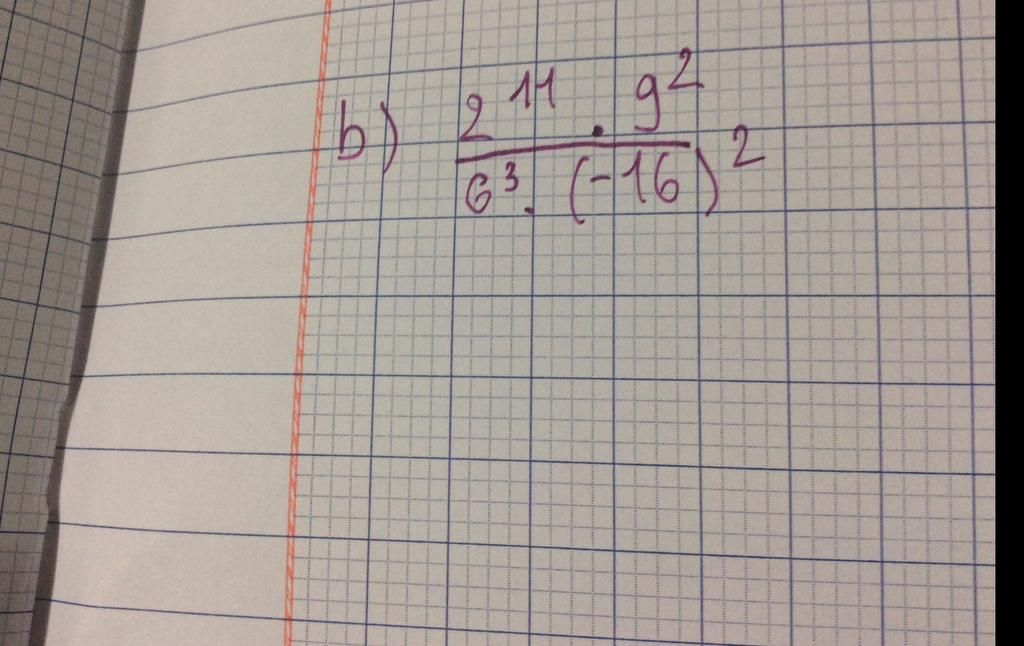 b) 2^11 . 9^2
6^3 . (-16)^2